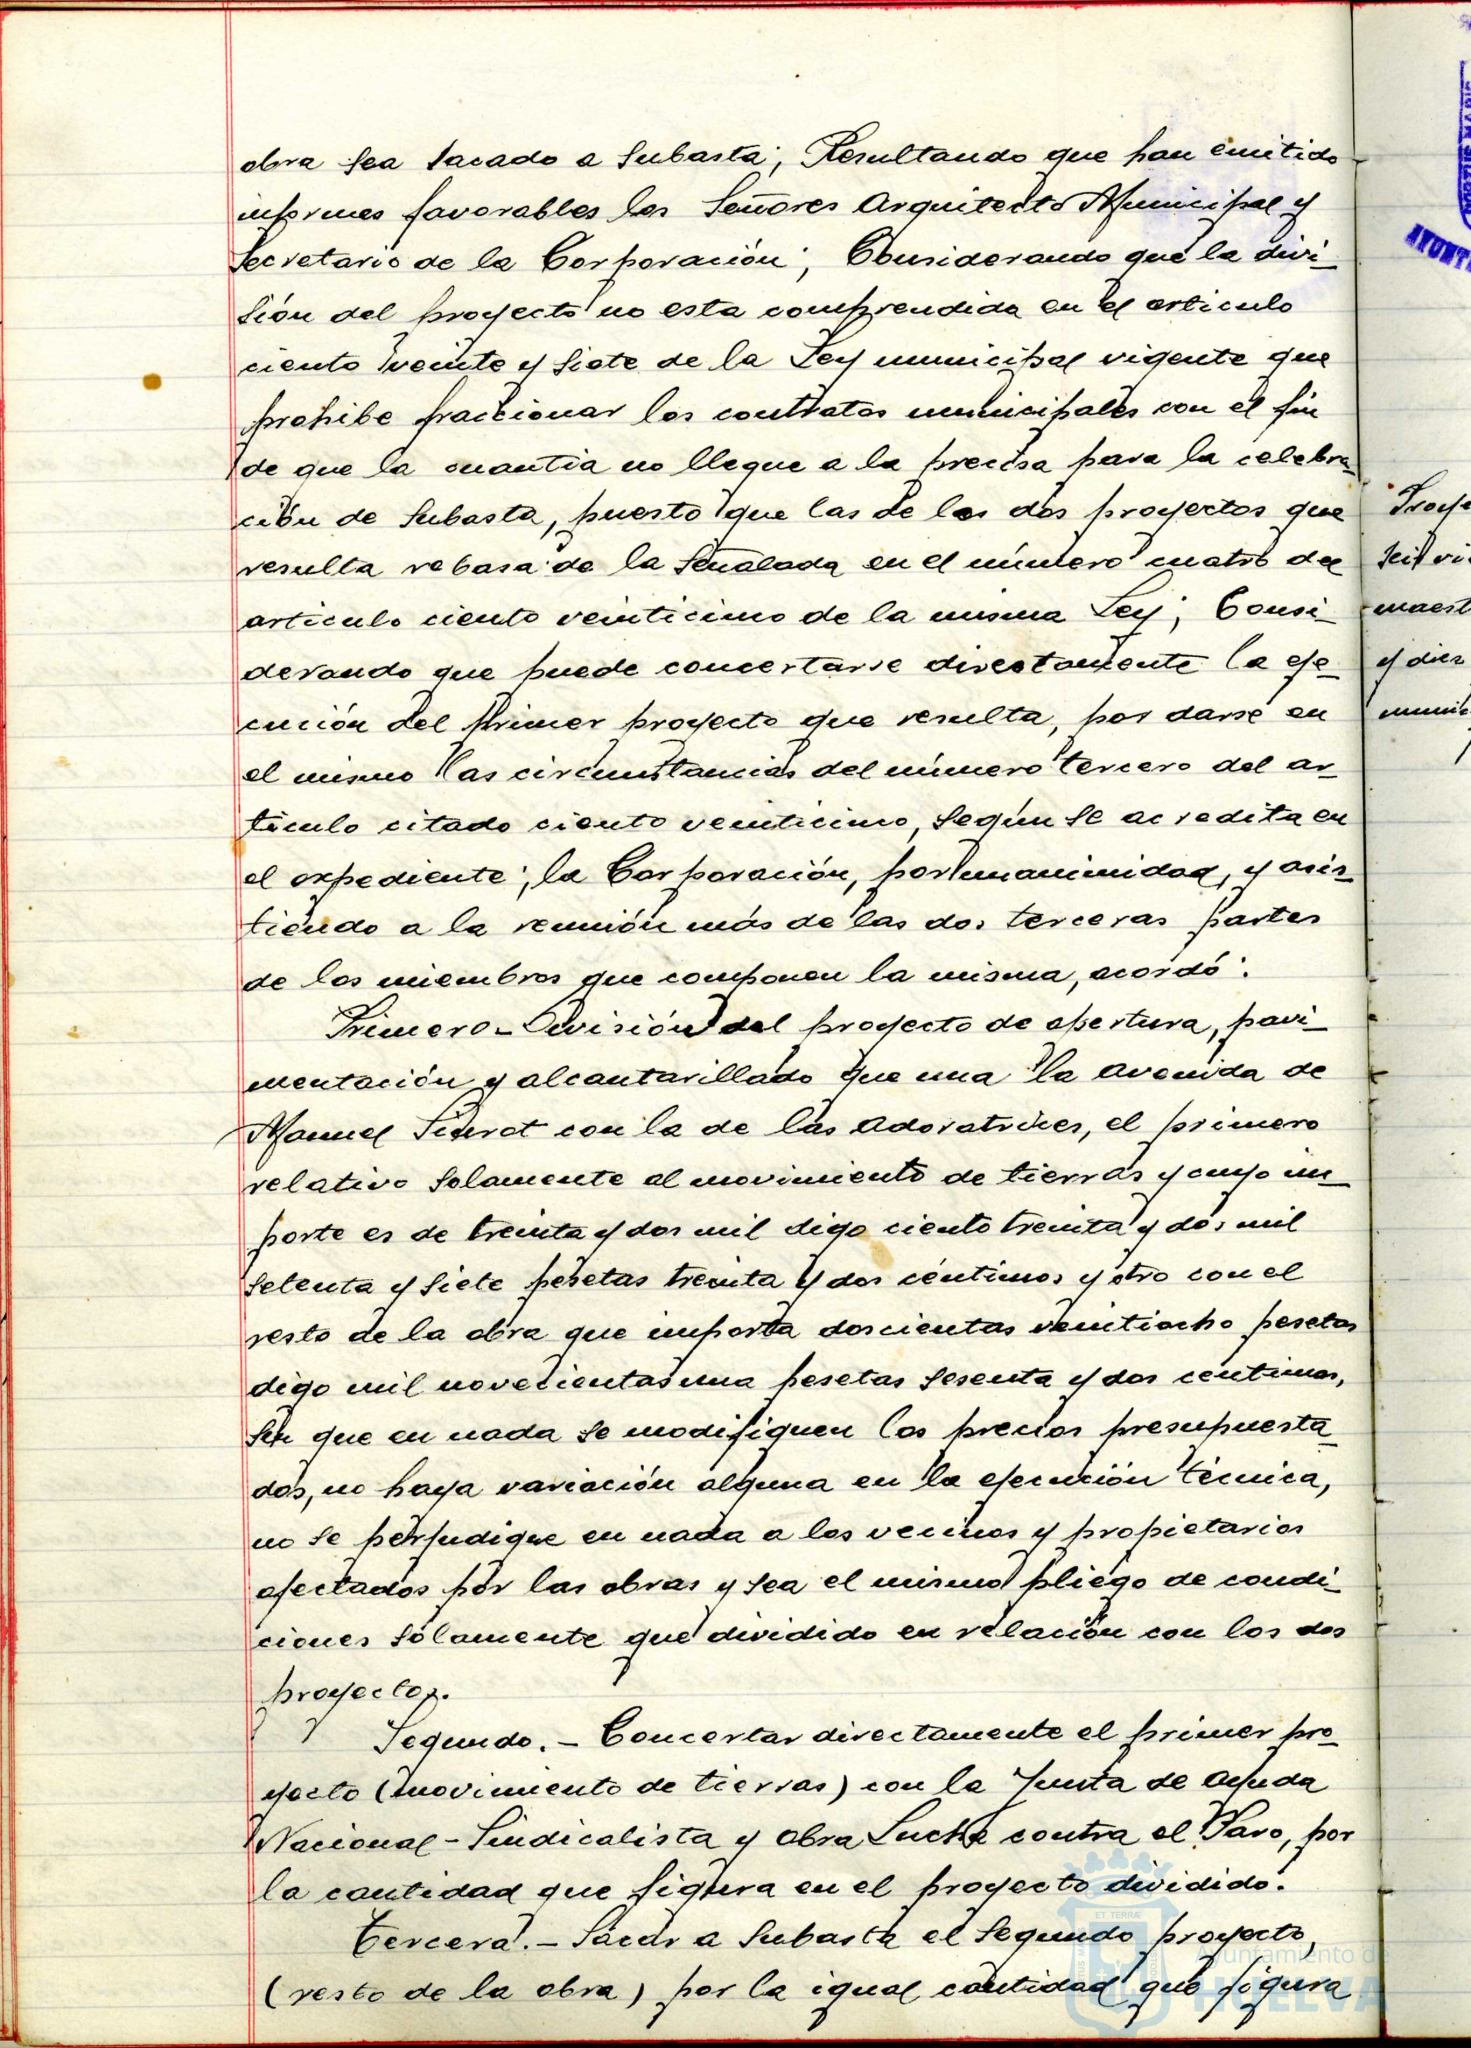 obra sea sacado a subasta; Resultando que han emitido
informes favorables los Señores Arquitecto Municipal y
Secretario de la Corporación; Considerando que la divi-
sión del proyecto no esta comprendida en el articulo
ciento veinte y siete de la Ley municipal vigente que
prohibe fraccionar los contratos municipales con el fin
de que la cuantia no llegue a la precisa para la celebra-
ción de subasta, puesto que las de los dos proyectos que
resulta rebasa de la señalada en el número cuatro del
articulo ciento veinticinco de la misma Ley; Consi-
derando que puede concertarse directamente la eje-
cución del primer proyecto que resulta, por darse en
el mismo las circunstancias del número tercero del ar-
tículo citado ciento veinticinco, según se acredita en
el expediente; la Corporación, por unanimidad, y asis-
tiendo a la reunión más de las dos terceras partes
de los miembros que componen la misma, acordó:
Primero - División del proyecto de apertura, pavi-
mentación y alcantarillado que una la avenida de
Manuel Siurot con la de las Adoratrices, el primero
relativo solamente al movimiento de tierras y cuyo im-
porte es de treinta y dos mil digo ciento treinta y dos mil
setenta y siete pesetas treinta y dos céntimos y otro con el
resto de la obra que importa doscientas veintiocho pesetas
digo mil novecientas una pesetas sesenta y dos centimos,
sin que en nada se modifiquen los precios presupuesta-
dos, no haya variación alguna en la ejecución técnica,
no se perjudique en nada a los vecinos y propietarios
afectados por las obras y sea el mismo pliego de condi-
ciones sólamente que dividido en relación con los dos
proyectos.
Segundo. - Concertar directamente el primer pro-
yecto (movimiento de tierras) con la Junta de Ayuda
Nacional-Sindicalista y Obra Lucha contra el Paro, por
la cantidad que figura en el proyecto dividido.
Tercera. - Sacar a subasta el segundo proyecto,
(resto de la obra) por la igual cantidad que figura
ET TERRÆ
Ayuntamiento de
HUELVA